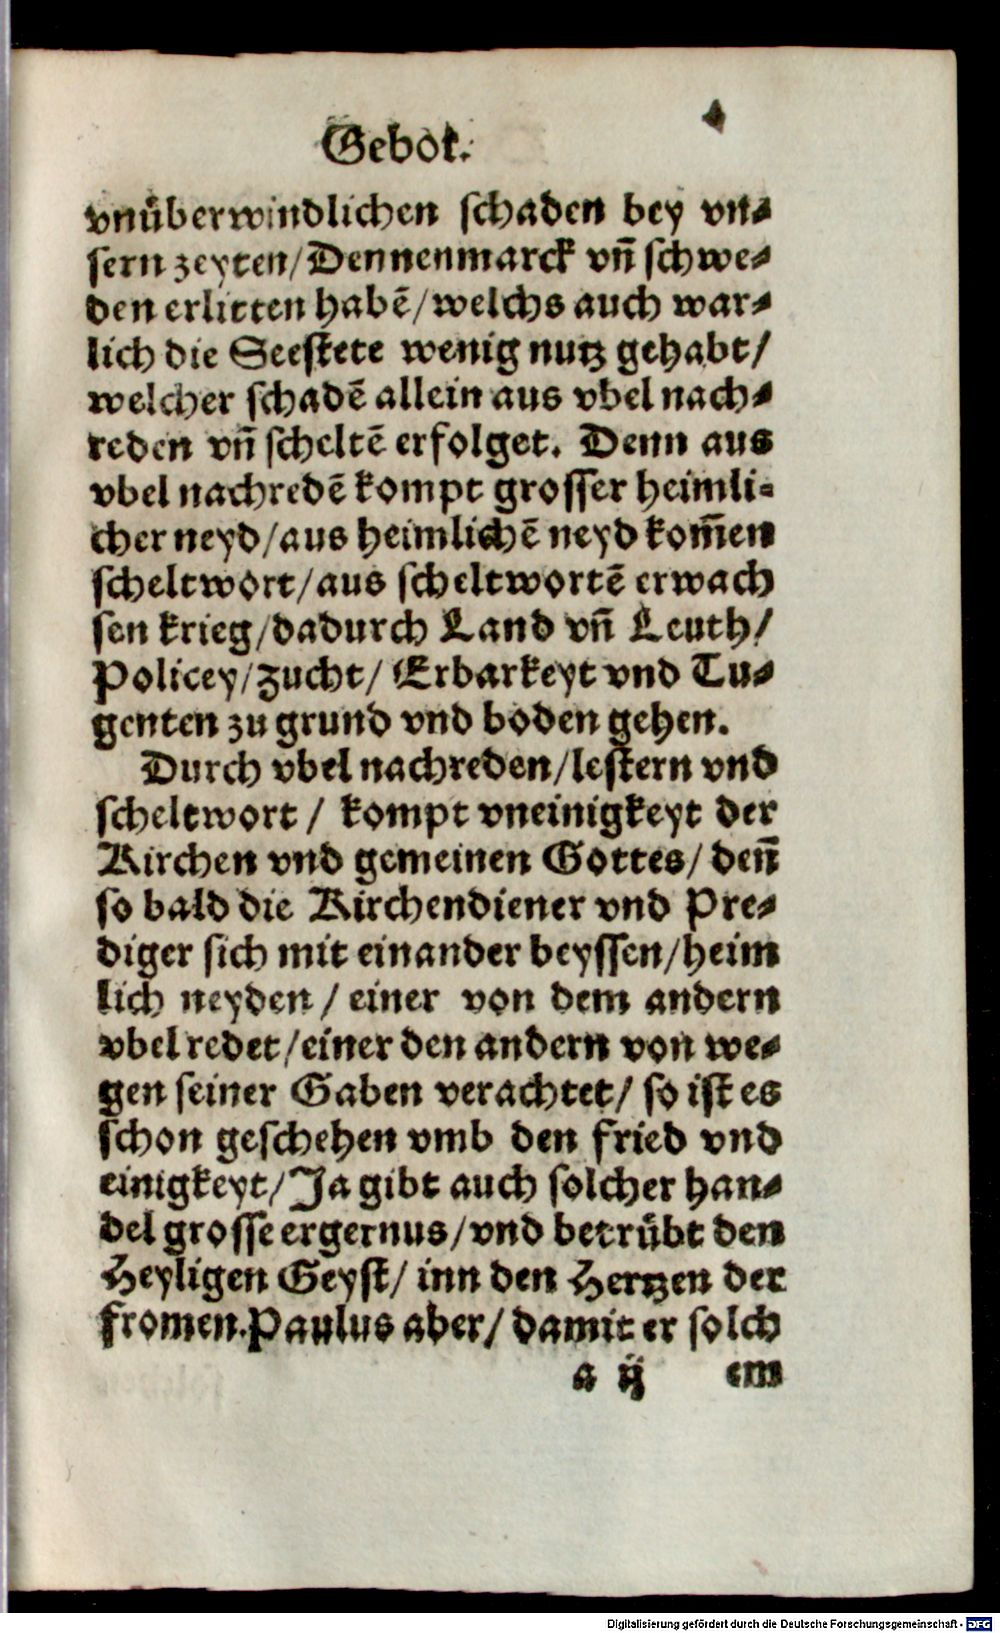 Gebot.
vnüberwindlichen schaden bey vn-
sern zeyten/Dennenmarck vn̄ schwe-
den erlitten habē/welchs auch war-
lich die Seestete wenig nutz gehabt/
welcher schadē allein aus vbel nach-
reden vn̄ scheltē erfolget. Denn aus
vbel nachredē kompt grosser heimli-
cher neyd/aus heimlichē neyd kom̄en
scheltwort/aus scheltwortē erwach
sen krieg/dadurch Land vn̄ Leuth/
Policey/zucht/Erbarkeyt vnd Tu-
genten zu grund vnd boden gehen.
Durch vbel nachreden/lestern vnd
scheltwort/ kompt vneinigkeyt der
Kirchen vnd gemeinen Gottes/ den̄
so bald die Kirchendiener vnd Pre-
diger sich mit einander beyssen/heim
lich neyden/ einer von dem andern
vbel redet/einer den andern von we-
gen seiner Gaben verachtet/ so ist es
schon geschehen vmb den fried vnd
einigkeyt/Ja gibt auch solcher han-
del grosse ergernus/vnd betrübt den
Heyligen Geyst/ inn den Hertzen der
fromen.Paulus aber/ damit er solch
a ij em
Digitalisierung gefördert durch die Deutsche Forschungsgemeinschaft - DFG